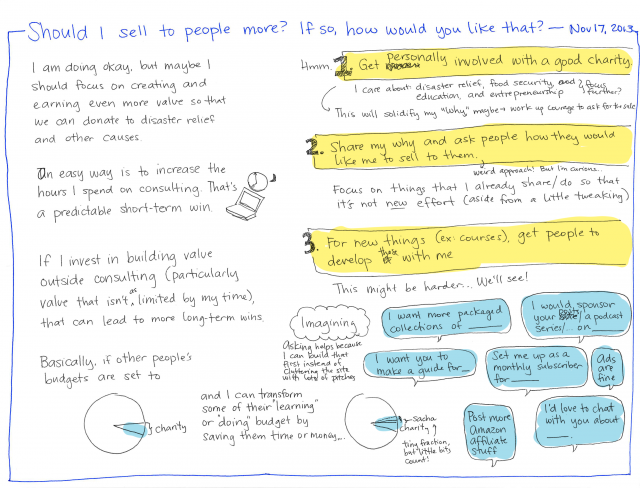 Should I sell to people more? If so, how would you like that? — Nov 17, 2013
I am doing okay, but maybe I
should focus on creating and
earning even more value so that
we can donate to disaster relief
and other causes.
An easy way is to increase the
hours I spend on consulting. That's
a predictable short-term win.
If I invest in building value
outside consulting (particularly
value that isn't as limited by my time),
that can lead to more long-term wins.
Basically, if other people's
budgets are set to
charity
and I can transform
some of their "learning"
or "doing" budget by
saving them time or money...
Sacha
charity
tiny fraction,
but little bits
count!
Hmm.
1. Get personally involved with a good charity.
I care about: disaster relief, food security, and
education, and entrepreneurship
? Focus
further?
This will solidify my "Why," maybe work up courage to ask for sale
2. Share my why and ask people how they would
like me to sell to them.
weird approach! But I'm curious...
Focus on things that I already share/do so that
it's not new effort (aside from a little tweaking)
3. For new things (ex: courses), get people to
develop those with me
This might be harder... We'll see!
Imagining
Asking helps because
I can build that
first instead of
cluttering the site
with lots of pitches
I want more packaged
collections of ____
I would sponsor
your posts / a podcast
series/... on ____
I want you to
make a guide for __
Set me up as a
monthly subscriber
for ____
Ads
are
fine
Post more
Amazon
affiliate
stuff
I'd love to chat
with you about
____.